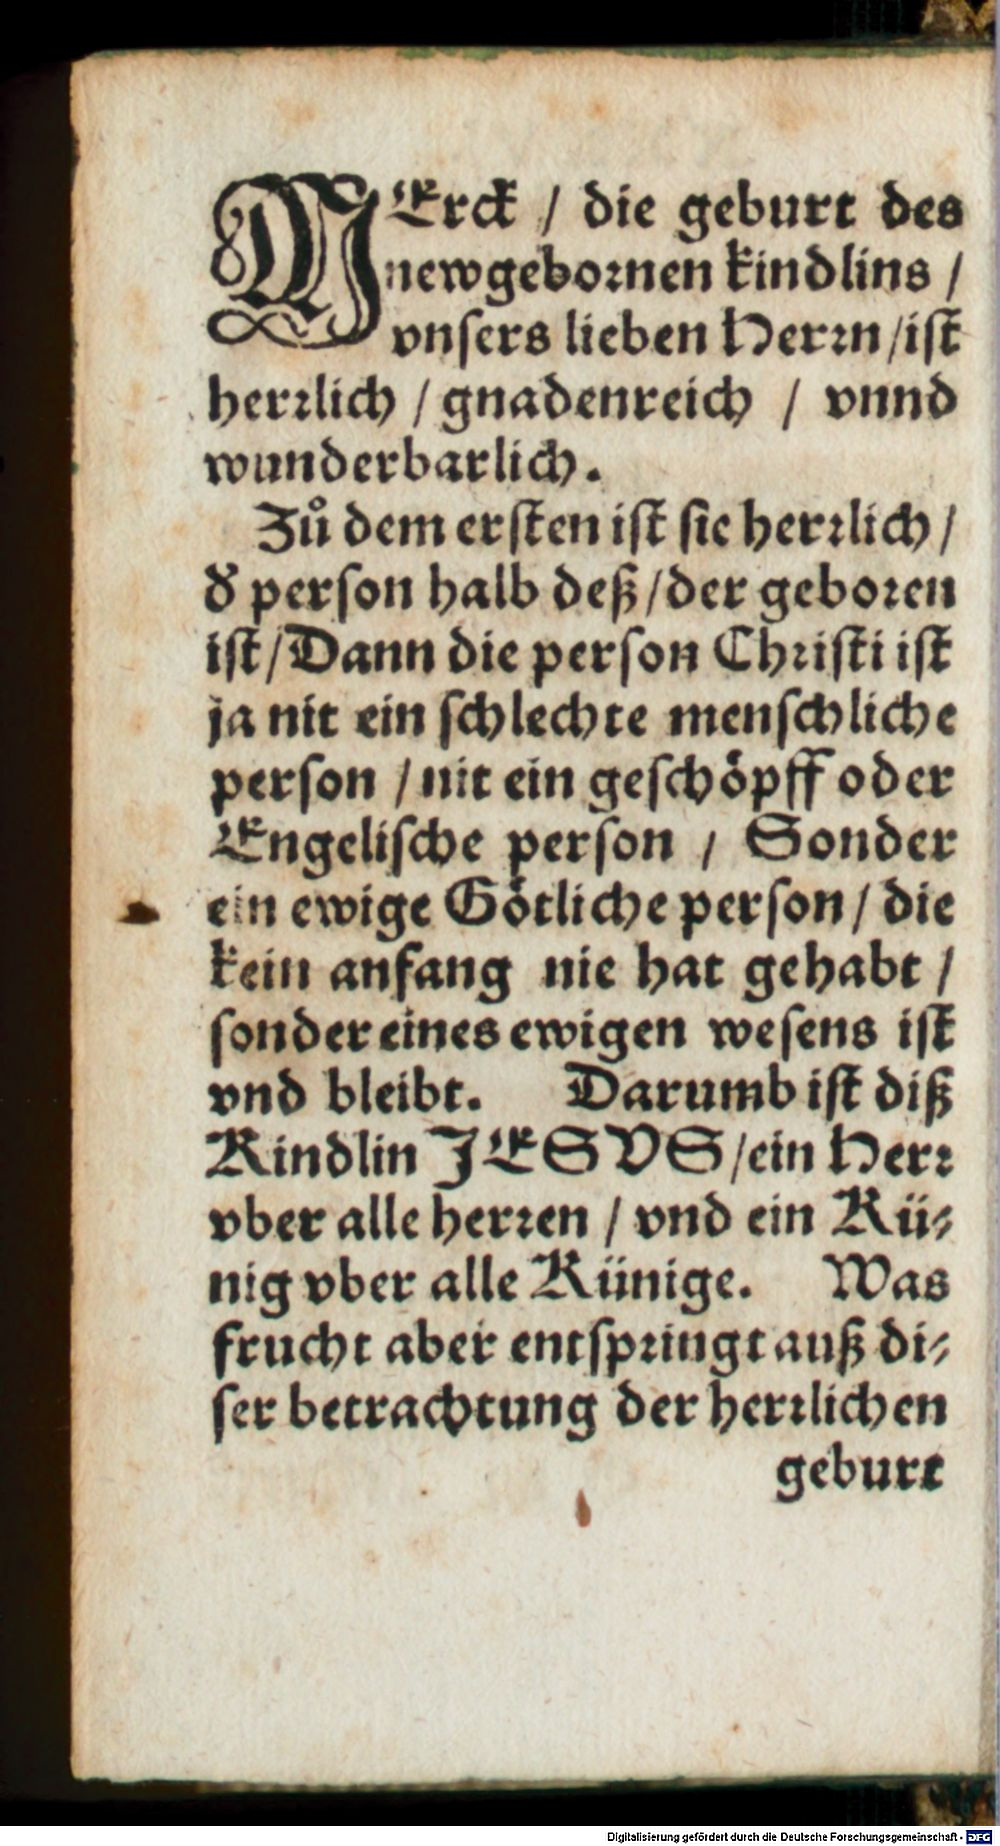 MErck / die geburt des
newgebornen kindlins /
vnsers lieben Herrn / ist
herrlich / gnadenreich / vnnd
wunderbarlich.
Zů dem ersten ist sie herrlich /
d̕ person halb deß / der geboren
ist / Dann die person Christi ist
ja nit ein schlechte menschliche
person / nit ein geschöpff oder
Engelische person / Sonder
ein ewige Götliche person / die
kein anfang nie hat gehabt /
sonder eines ewigen wesens ist
vnd bleibt. Darumb ist diß
Kindlin JESVS / ein Herr
vber alle herren / vnd ein Kü⸗
nig vber alle Künige. Was
frucht aber entspringt auß di⸗
ser betrachtung der herrlichen
geburt
Digitalisierung gefördert durch die Deutsche Forschungsgemeinschaft - DFG